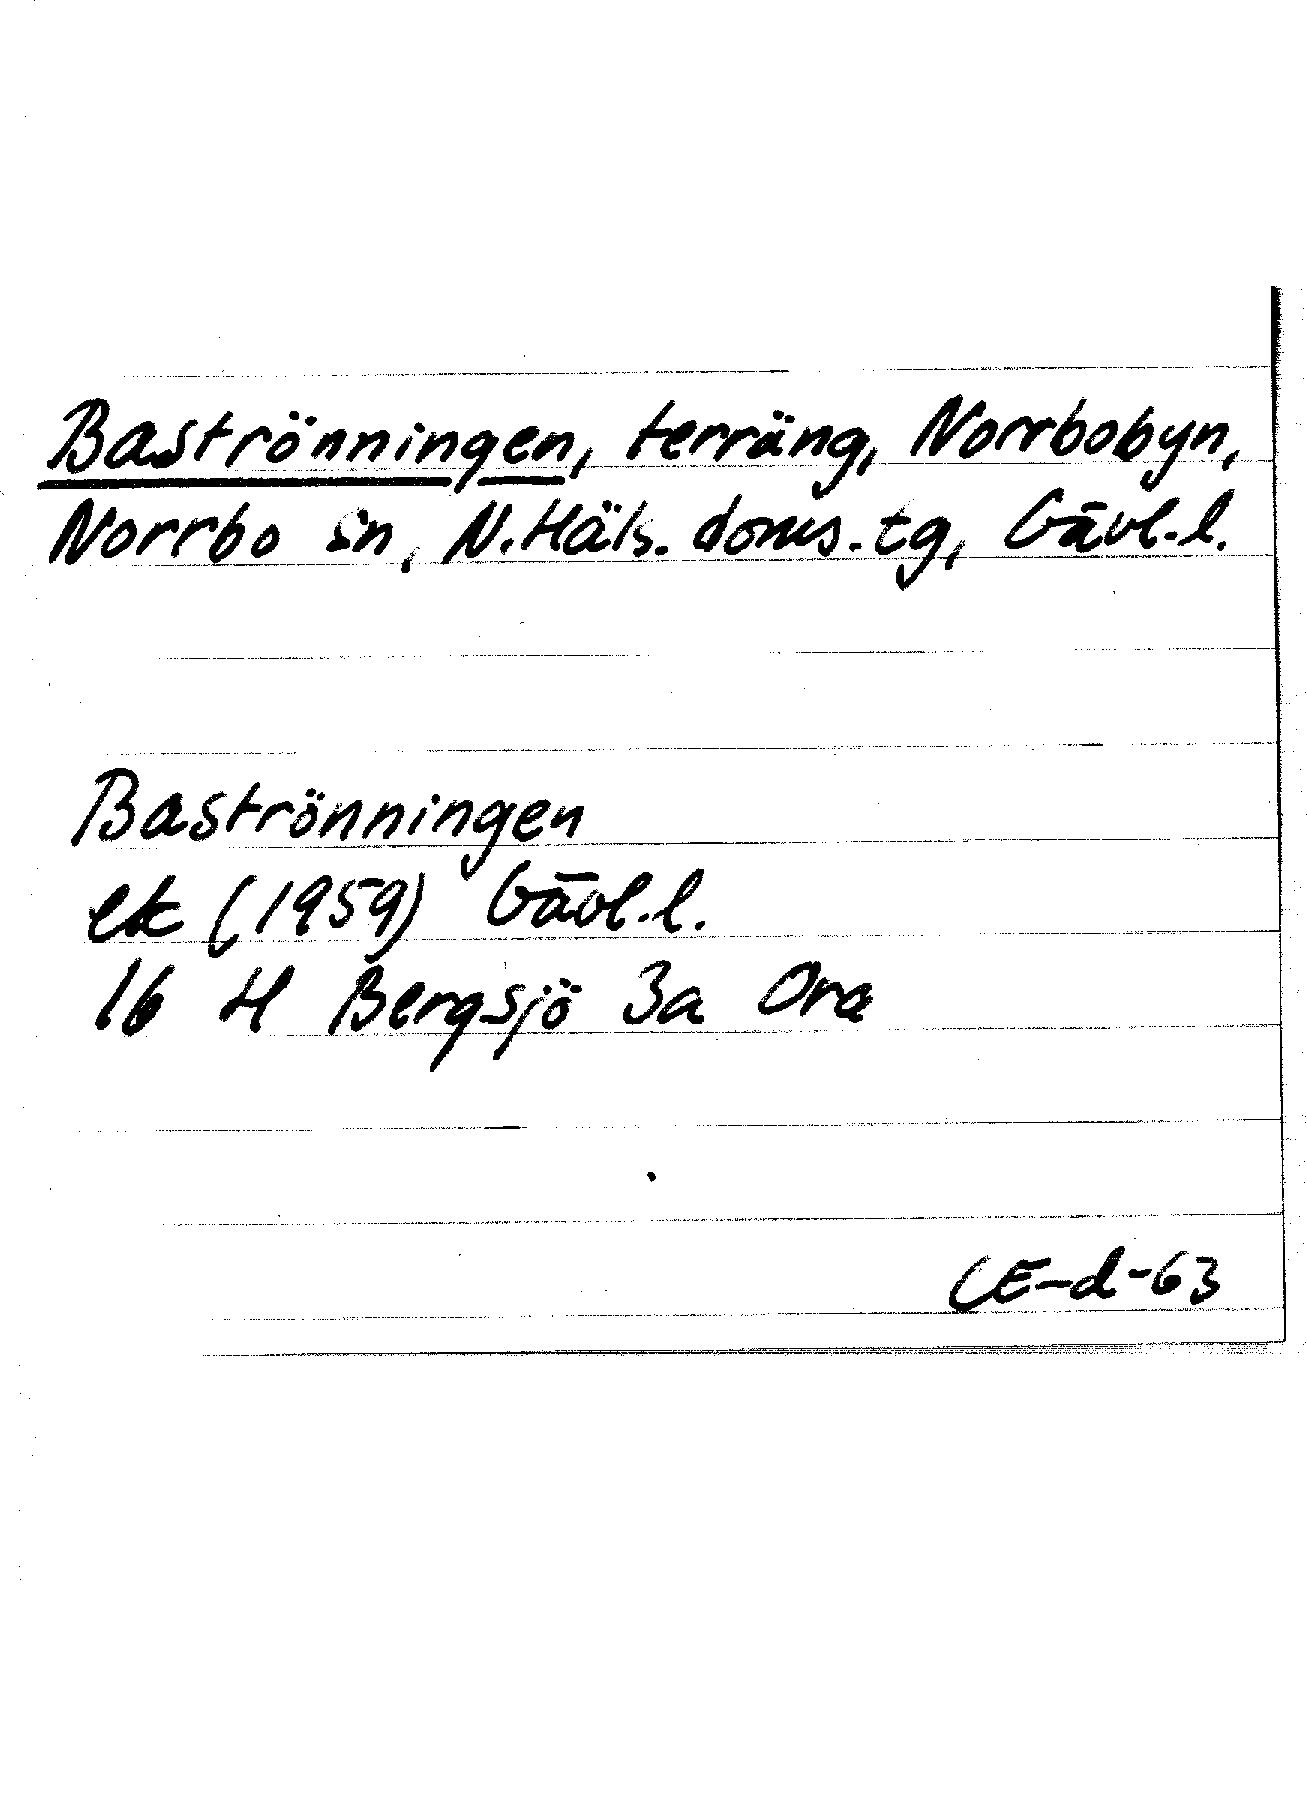 Baströnningen, terräng, Norrbobyn,
Norrbo sn, N. Häls. doms. tg, Gävl. l.
Baströnningen
ek (1959) Gävl. l.
16 H Bergsjö 3a Ora
CE-d-63